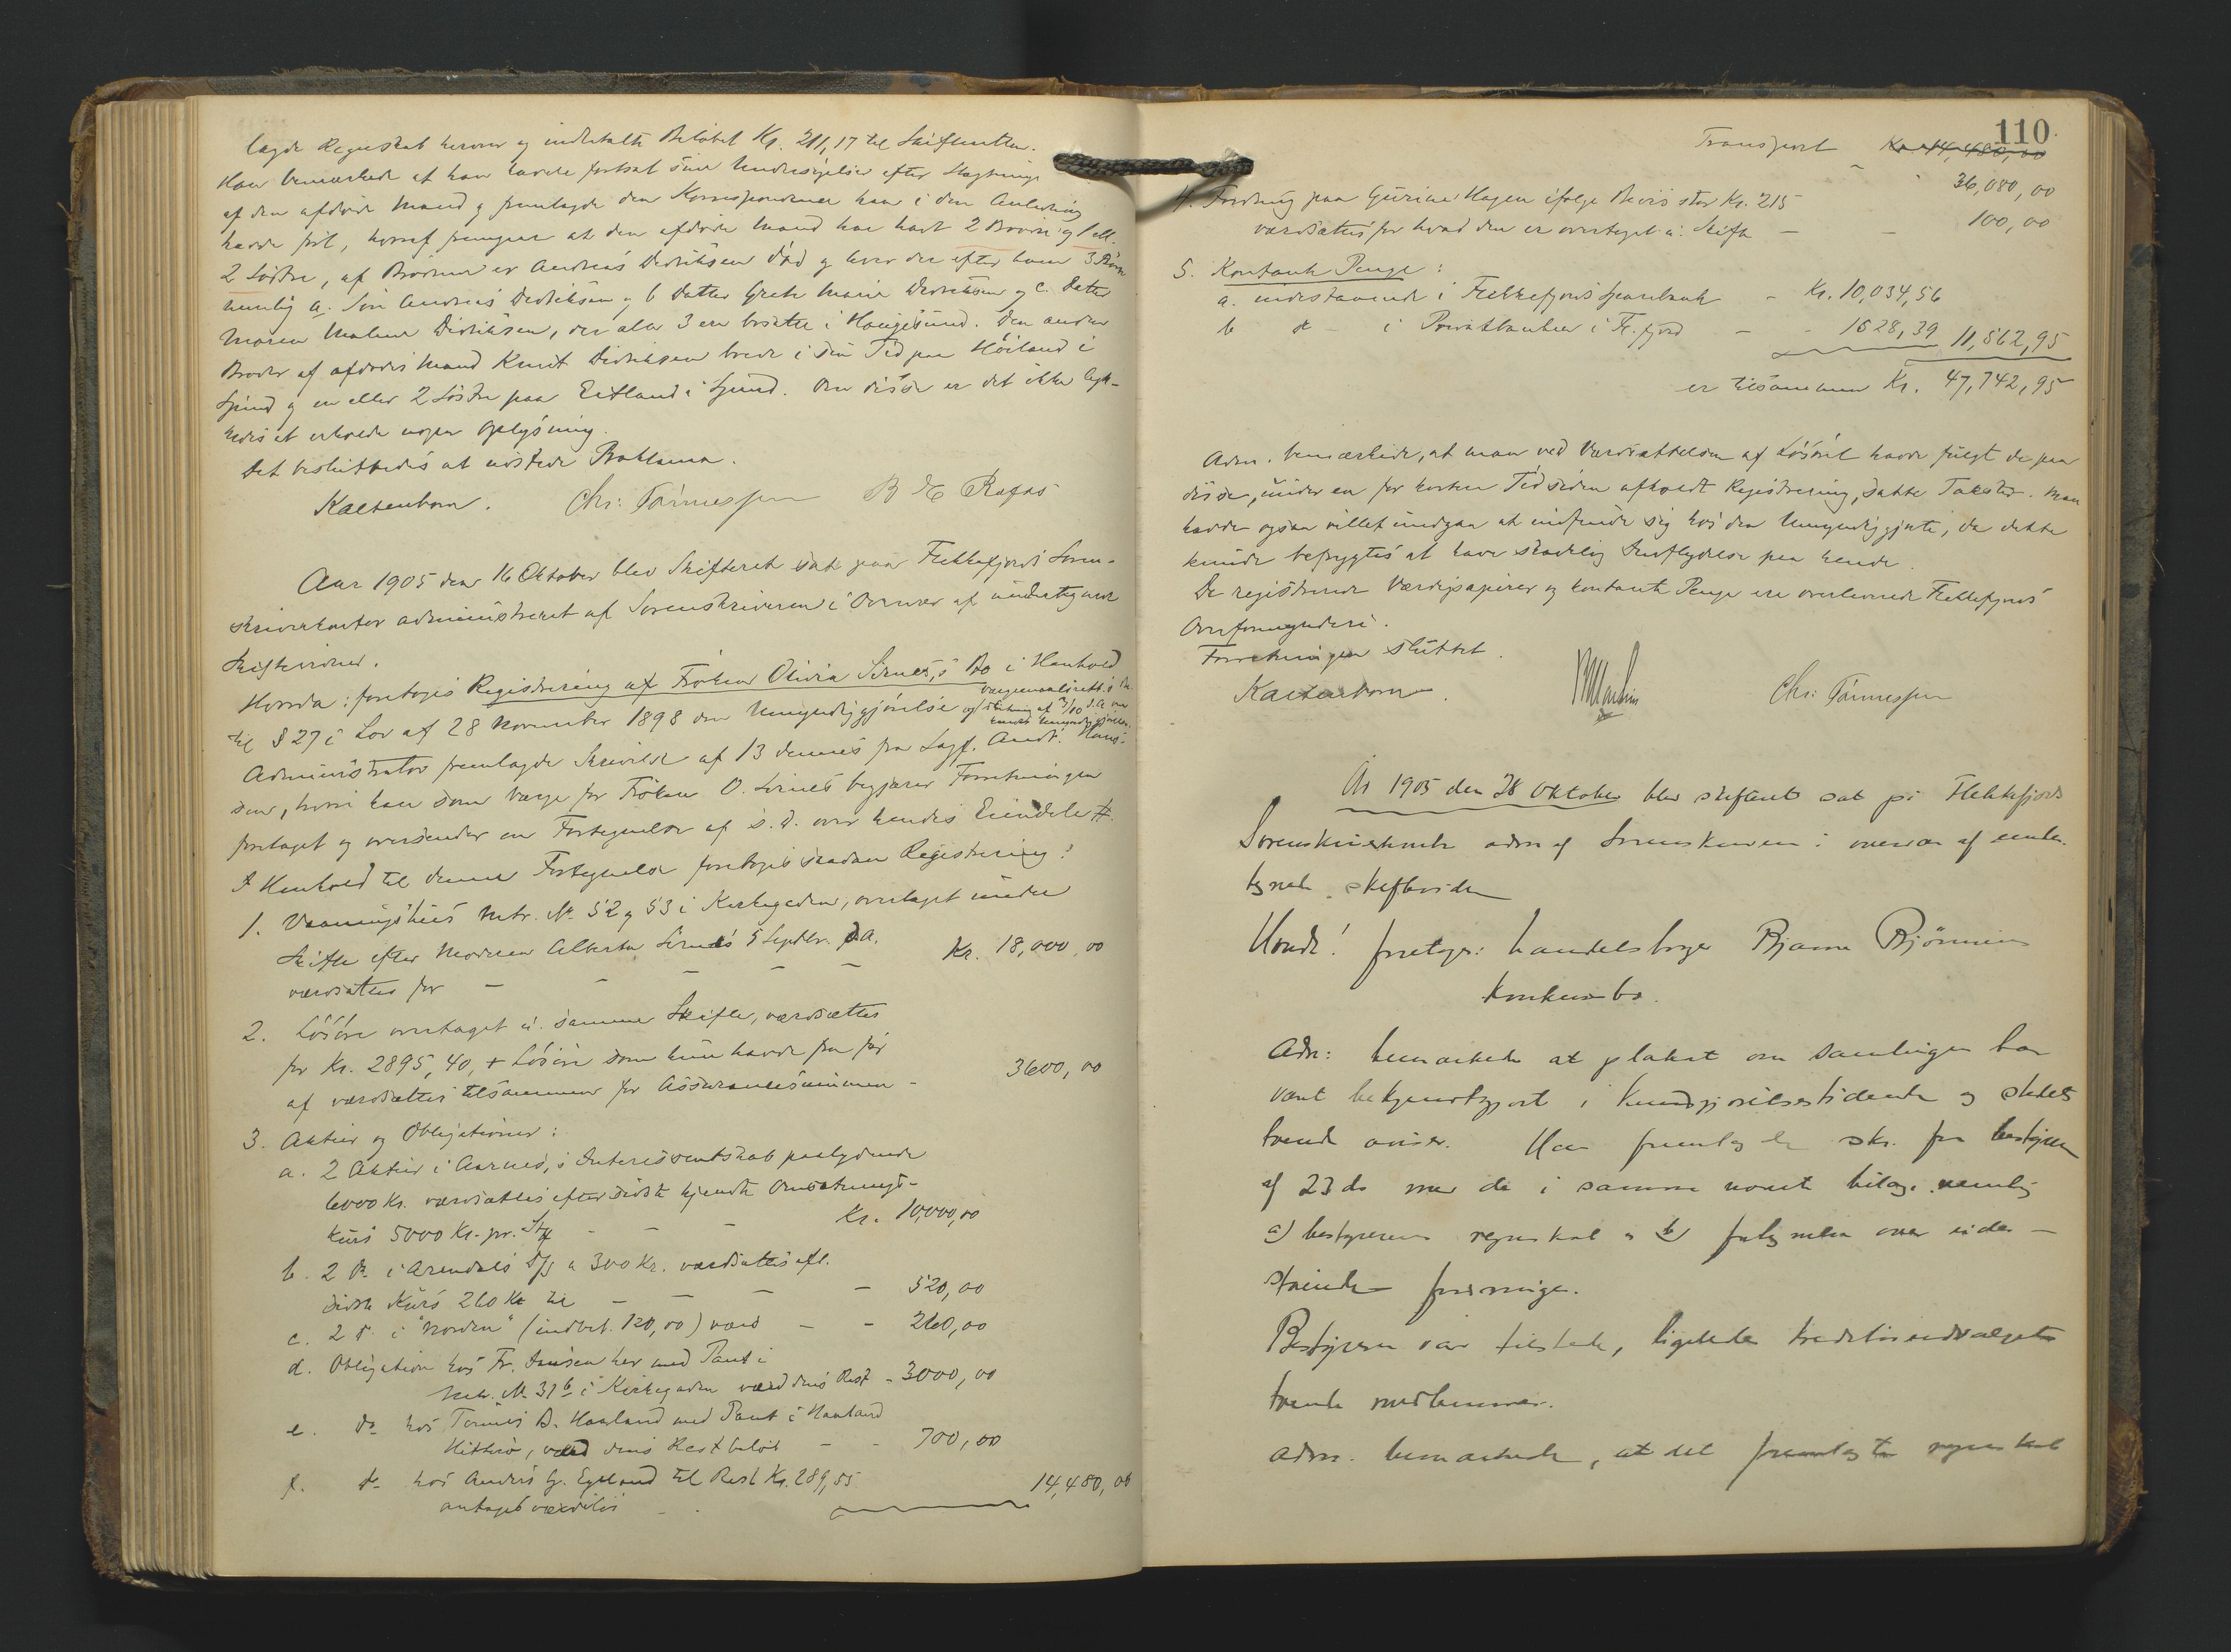 lagde Regnskab herover og indbetalte Beløbet Kr. 211,17 til Skifteretten.
Han bemærkede at han havde fortsat sine Undersøgelser efter Slægtninge
af den afdøde Mand og fremlagde den Korrespondence han i den Anledning
havde ført, hvoraf fremgaar at den afdøde Mand har havt 2 Brødre og 1 ell.
2 Søstre, af Brødrene er Andreas Didriksen død og lever der efter ham 3 Børn
nemlig a. Søn Andreas Didriksen og b Datter Grete Marie Didriksen og c. Datter
Maren Malene Didriksen, der alle 3 ere bosatte i Haugesund. Den anden
Broder af afdødes Mand Knud Didriksen boede i sin Tid paa Høiland i
Spind og en eller 2 Søstre paa Eitland i Spind. Om disse er det ikke lyk-
kedes at erholde nogen Oplysning.
Det besluttedes at udstede Proklama.
Kaltenborn. Chr: Tønnessen B H Rafos
Aar 1905 den 16 Oktober blev Skifteret sat paa Flekkefjords Soren-
skriverkontor administreret af Sorenskriveren i Overvær af undertegnede
Skiftevidner.
Hvorda: foretoges Registrering af Frøken Olivia Sirnes's Bo i Henhold
til § 27 i Lov af 28 November 1898 om Umyndiggjørelse og Værgemaalsrett.s Be-
slutning af 3/10 d.A. om
hendes Umyndiggjørelse.
Administrator fremlagde Skrivelse af 13 dennes fra Sagf. Andr. Hans-
sen, hvori han som Værge for Frøken O. Sirnes begjærer Forretningen
foretaget og oversender en Fortegnelse af s. D. over hendes Eiendele #.
I Henhold til denne Fortegnelse foretoges saadan Registrering:
1. Vaaningshus Matr. No. 52 og 53 i Kirkegaden, overtaget under
Skifte efter Moderen Alberta Sirnes 5 Septbr. d.A.
værdsættes for - - - - Kr. 18,000,00
2. Løsøre overtaget u. samme Skifte, værdsættes
for Kr. 2895,40, + Løsøre som hun havde fra før
af værdsættes tilsammen for Assurancesummen - 3600,00
3. Aktier og Obligationer:
a. 2 Aktier i Aarnes, s Interessentskab paalydende
6000 Kr. værdsættes efter sidste kjendte Omsætnings-
kurs 5000 Kr. pr. Stk - - - Kr. 10,000,00
b. 2 Do. i Arendals D/S a 300 Kr. værdsættes eft.
sidste Kurs 260 Kr til - - - - 520,00
c. 2 D. i "Norden" (indbet. 120,00) værd - - 260,00
d. Obligation hos Fr. Jansen her med Pant i
Matr. No. 31b i Kirkegaden værd dens Rest - 3000,00
e. do hos Tønnes B. Haaland med Pant i Haaland
Hitterø, værd dens Restbeløb - - 700,00
f. do hos Anders G. Egeland til Rest Kr. 289,55
antages værdiløs - . 14,480,00
110
Transport Kr. 14,480,00
- " 36,080,00
4. Fordring paa Gurine Hagen ifølge Bevis stor Kr. 215
værdsættes for hvad den er overtaget u. Skifte - - 100,00
5. Kontante Penge:
a. indestaaende i Flekkefjords Sparebank - Kr. 10,034,56
b do - i Privatbanken i Fl.fjord - - 1528,39 11,562,95
er tilsammen Kr. 47,742,95
Adm. bemærkede, at man ved Værdsættelsen af Løsøret havde fulgt de paa
disse, under en for kortere Tid siden afholdt Registrering, satte Takster. Man
havde ogsaa villet undgaa at indfinde sig hos den Umyndiggjorte, da dette
kunde befrygtes at have skadelig Indflydelse paa hende.
De registrerede Værdipapirer og kontante Penge ere overleverede Flekkefjords
Overformynderi.
Forretningen sluttet.
Kaltenborn. Chr: Tønnessen
År 1905 den 28 Oktober blev skifteret sat på Flekkefjords
Sorenskriverkontor adm af Sorenskriveren i overvær af under-
tegnede skiftevidner
Hvorda! foretoges: handelsborger Bjarne Bjørnsens
Konkursbo.
Adm: bemærkede at plakat om samlingen har
været bekjendtgjort i Kundgjørelsestidende og stedets
tvende aviser. Han fremlagde skr. fra bestyreren
af 23 ds med de i samme nævnte bilage nemlig
a) bestyrerens regnskab og b) fortegnelse over uide-
stående fordringer.
Bestyreren var tilstede, ligeledes kreditorudvalgets
tvende medlemmer.
Adm. bemærkede, at det fremlagte regnskab